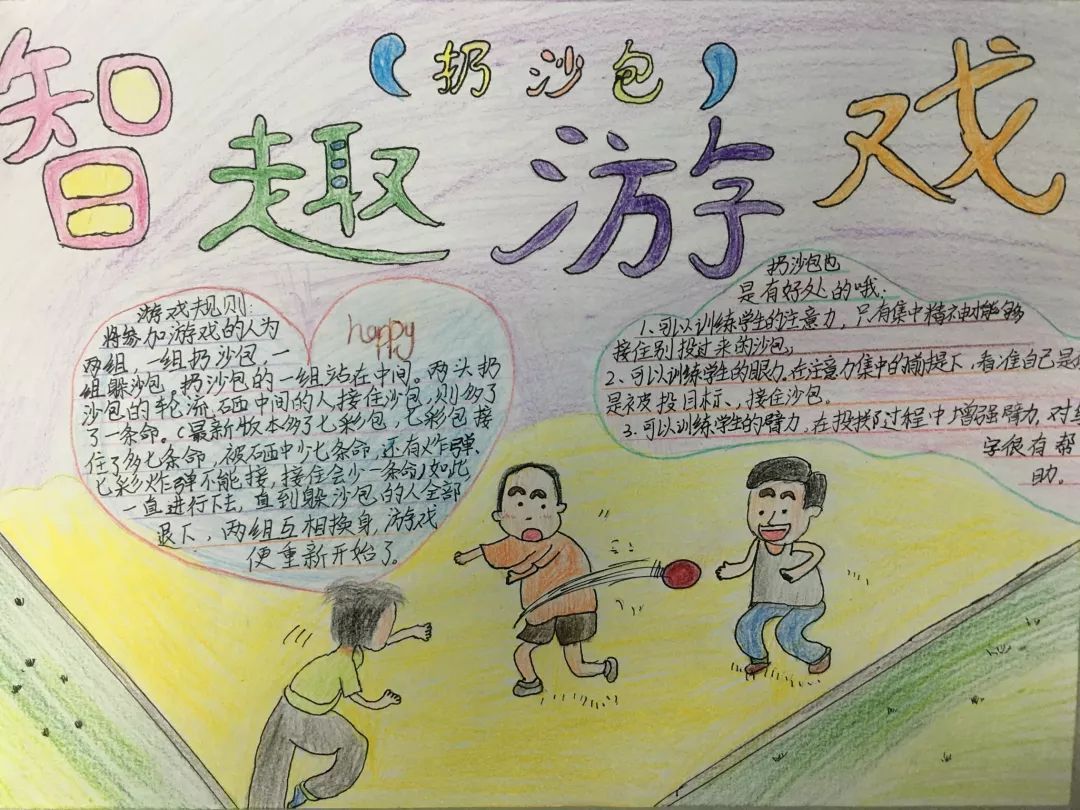 (扔沙包)
智趣游戏
游戏规则:
将参加游戏的人为
两组，一组扔沙包，一
组躲沙包，扔沙包的一组站在中间。两头扔
沙包的轮流砸中间的人接住沙包，则多了
了一条命。(最新版本多了七彩包，七彩包接
住了多七条命，被砸中少七条命，还有炸弹、
七彩炸弹不能接，接住会少一条命)如此，
一直进行下去，直到躲沙包的人全部
退下，两组互相换身，游戏
便重新开始了。
happy
扔沙包也
是有好处的哦:
1、可以训练学生的注意力，只有集中精神才能够
接住别投过来的沙包。
2、可以训练学生的眼力，在注意力集中的前提下，看准自己是
是被投目标、接住沙包。
3、可以训练学生的臂力，在投掷过程中增强臂力，对
字很有帮
助。